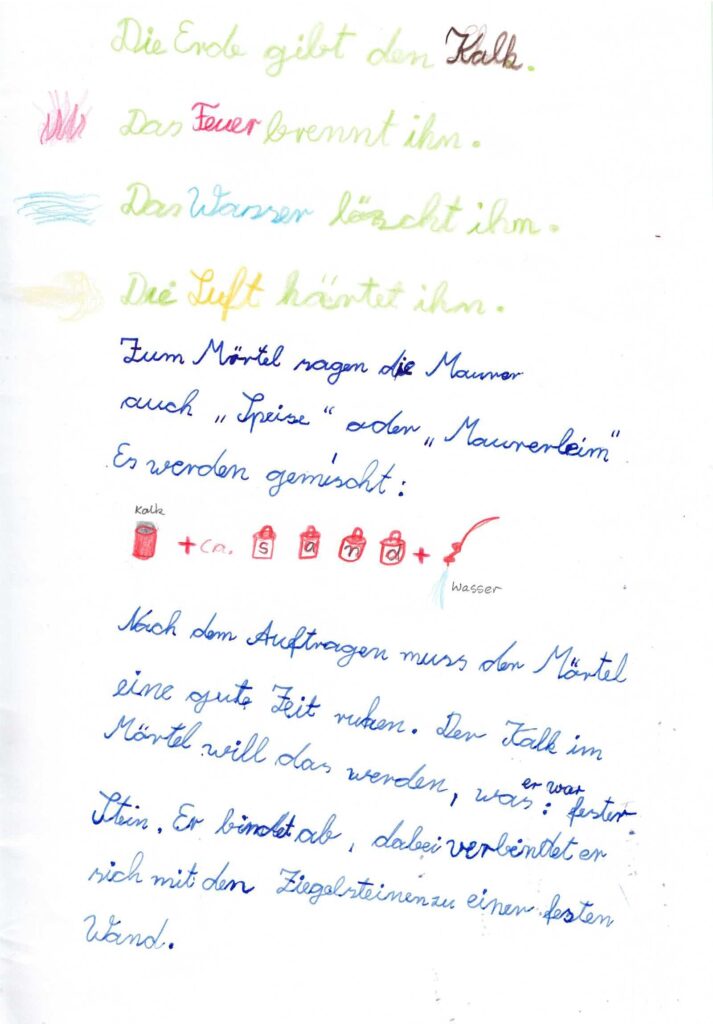 Die Erde gibt den Kalk.
Das Feuer brennt ihn.
Das Wasser löscht ihn.
Die Luft härtet ihn.
Zum Mörtel sagen die Maurer
auch „Speise“ oder „Maurerleim“
Es werden gemischt:
Kalk
+ ca. S a n d +
Wasser
Nach dem Auftragen muss der Mörtel
eine gute Zeit ruhen. Der Kalk im
Mörtel will das werden, was er war: fester
Stein. Er bindet ab, dabei verbindet er
sich mit den Ziegelsteinen zu einer festen
Wand.